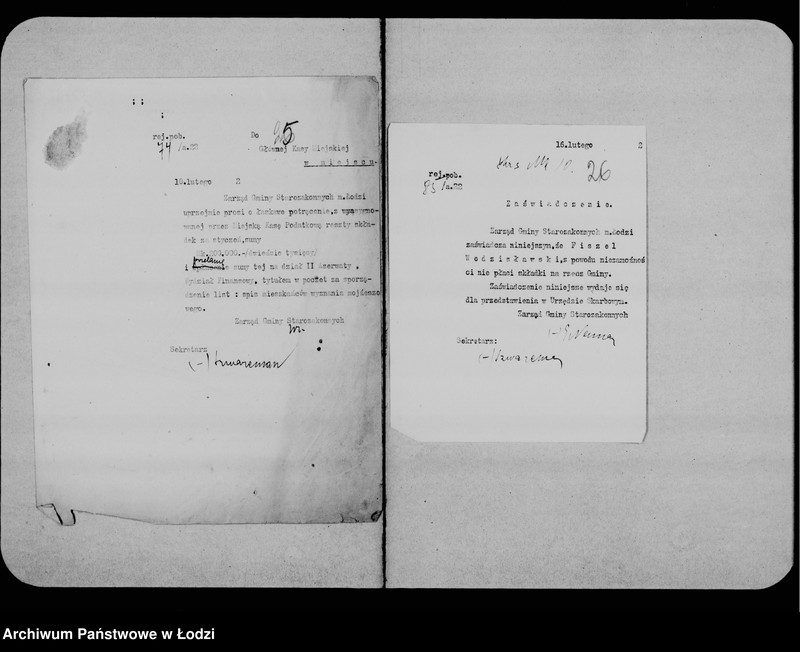 rej.pob.
74/a.22
Do
25
Głównej Kasy Miejskiej
w miejscu.
10.lutego 2
Zarząd Gminy Starozakonnych m.Łodzi
uprzejmie prosi o łaskawe potrącenie, z
wanej przez Miejską Kasę Podatkową reszty skła-
dek za styczeń, sumy
Mk.200.000.-/dwieście tysięcy/
i przelanie sumy tej na dział II Aserwaty,
Wydział Finansowy, tytułem w poczet za sporzą-
dzenie list : spis mieszkańców wyznania mojżeszo
wego.
Zarząd Gminy Starozakonnych
Sekretarz
(-) Szwarcman
16.lutego 2
26
rej.pob.
85/a.22
Zaświadczenie.
Zarząd Gminy Starozakonnych m.Łodzi
zaświadcza niniejszym, że Fiszel
Wodzisławski, z powodu niezamożnoś
ci nie płaci składki na rzecz Gminy.
Zaświadczenie niniejsze wydaje się
dla przedstawienia w Urzędzie Skarbowym.
Zarząd Gminy Starozakonnych
Sekretarz:
(-) Szwarcman
Archiwum Państwowe w Łodzi